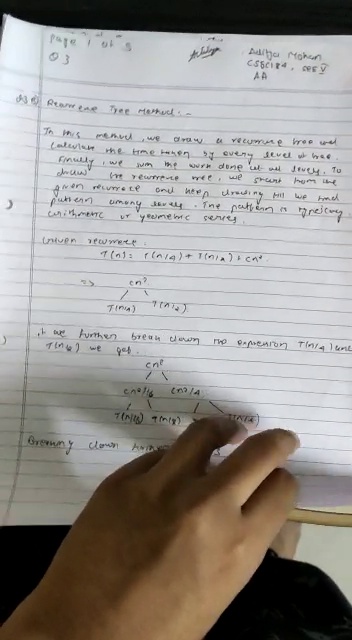 Page 1 of 5
Q3
Aditya Mohan
CSSC184, sec V
AA
Recurrence Tree Method :-
In this method, we draw a recurrence tree and
calculate the time taken by every level of tree.
Finally, we sum the work done at all levels. To
draw the recurrence tree, we start from the
given recurrence and keep drawing till we find
pattern among levels. The pattern is typically
arithmetic or geometric series.
Given recurrence
T(n) = T(n/4) + T(n/2) + cn²
=> cn²
T(n/4) T(n/2)
If we further break down the expression T(n/4) and
T(n/2) we get.
cn²
cn²/16 cn²/4
T(n/16) T(n/8) T(n/4)
Breaking down